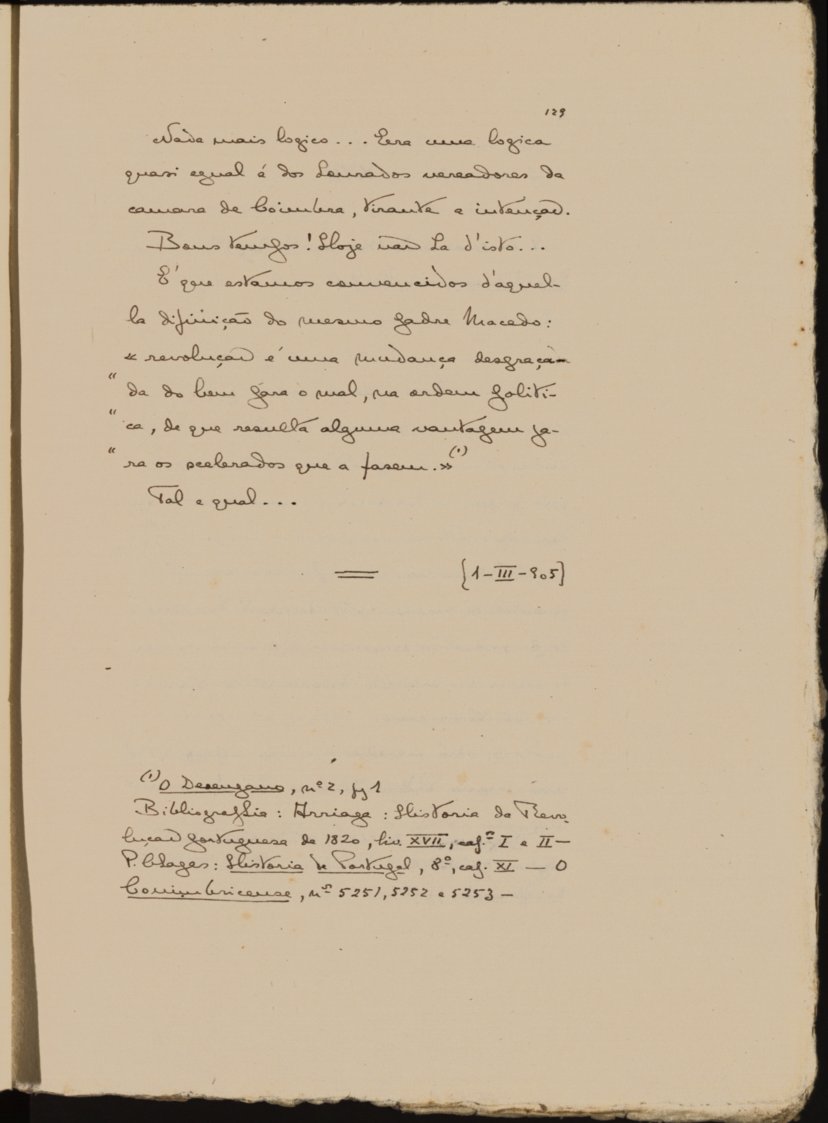 129
Nada mais logico... Era uma logica
quasi egual á dos Lourados vereadores da
camara de Coimbra, tirante a intenção.
Bons tempos! Hoje não ha d'isto...
E' que estamos convencidos d'aquel-
la difinição do mesmo padre Macedo:
« revolução é uma mudança desgraça-
" da do bem para o mal, na ordem politi-
" ca, de que resulta alguma vantagem pa-
" ra os scelerados que a fasem.» (1)
Tal e qual...
[1-III-905]
(1) O Desengano, nº 2, pg 1
Bibliographia: Arriaga: Historia da Revo-
lução portuguesa de 1820, liv. XVII, cap.os I e II —
P. Chagas: Historia de Portugal, 8º, cap. XI — O
Conimbricense, nos 5251, 5252 e 5253 —